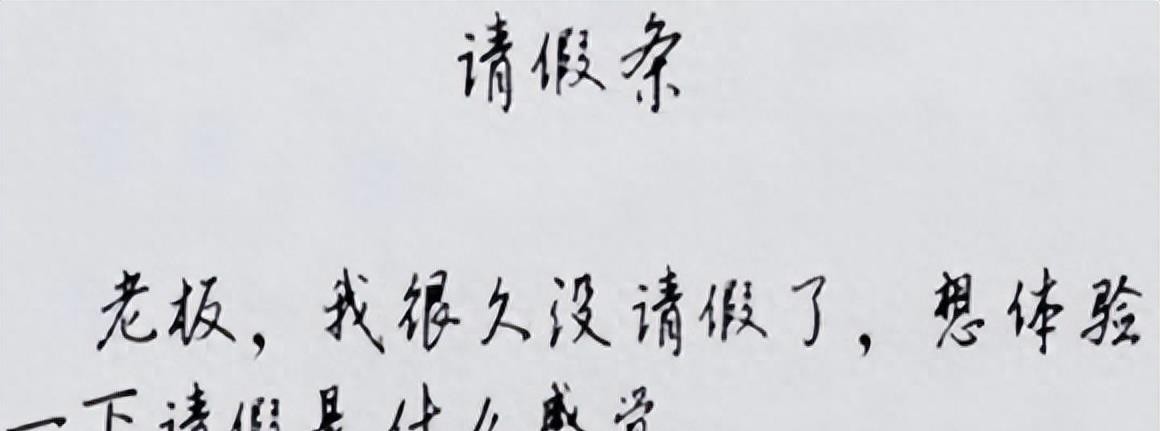 请假条
老板，我很久没请假了，想体验
一下请假是什么感觉